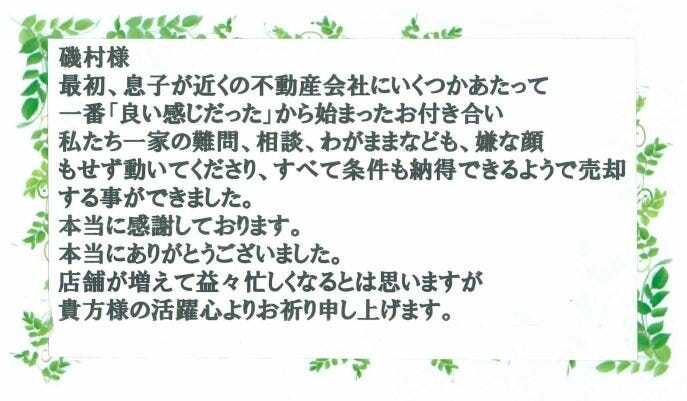 磯村様
最初、息子が近くの不動産会社にいくつかあたって
一番「良い感じだった」から始まったお付き合い
私たち一家の難問、相談、わがままなども、嫌な顔
もせず動いてくださり、すべて条件も納得できるようで売却
する事ができました。
本当に感謝しております。
本当にありがとうございました。
店舗が増えて益々忙しくなるとは思いますが
貴方様の活躍心よりお祈り申し上げます。